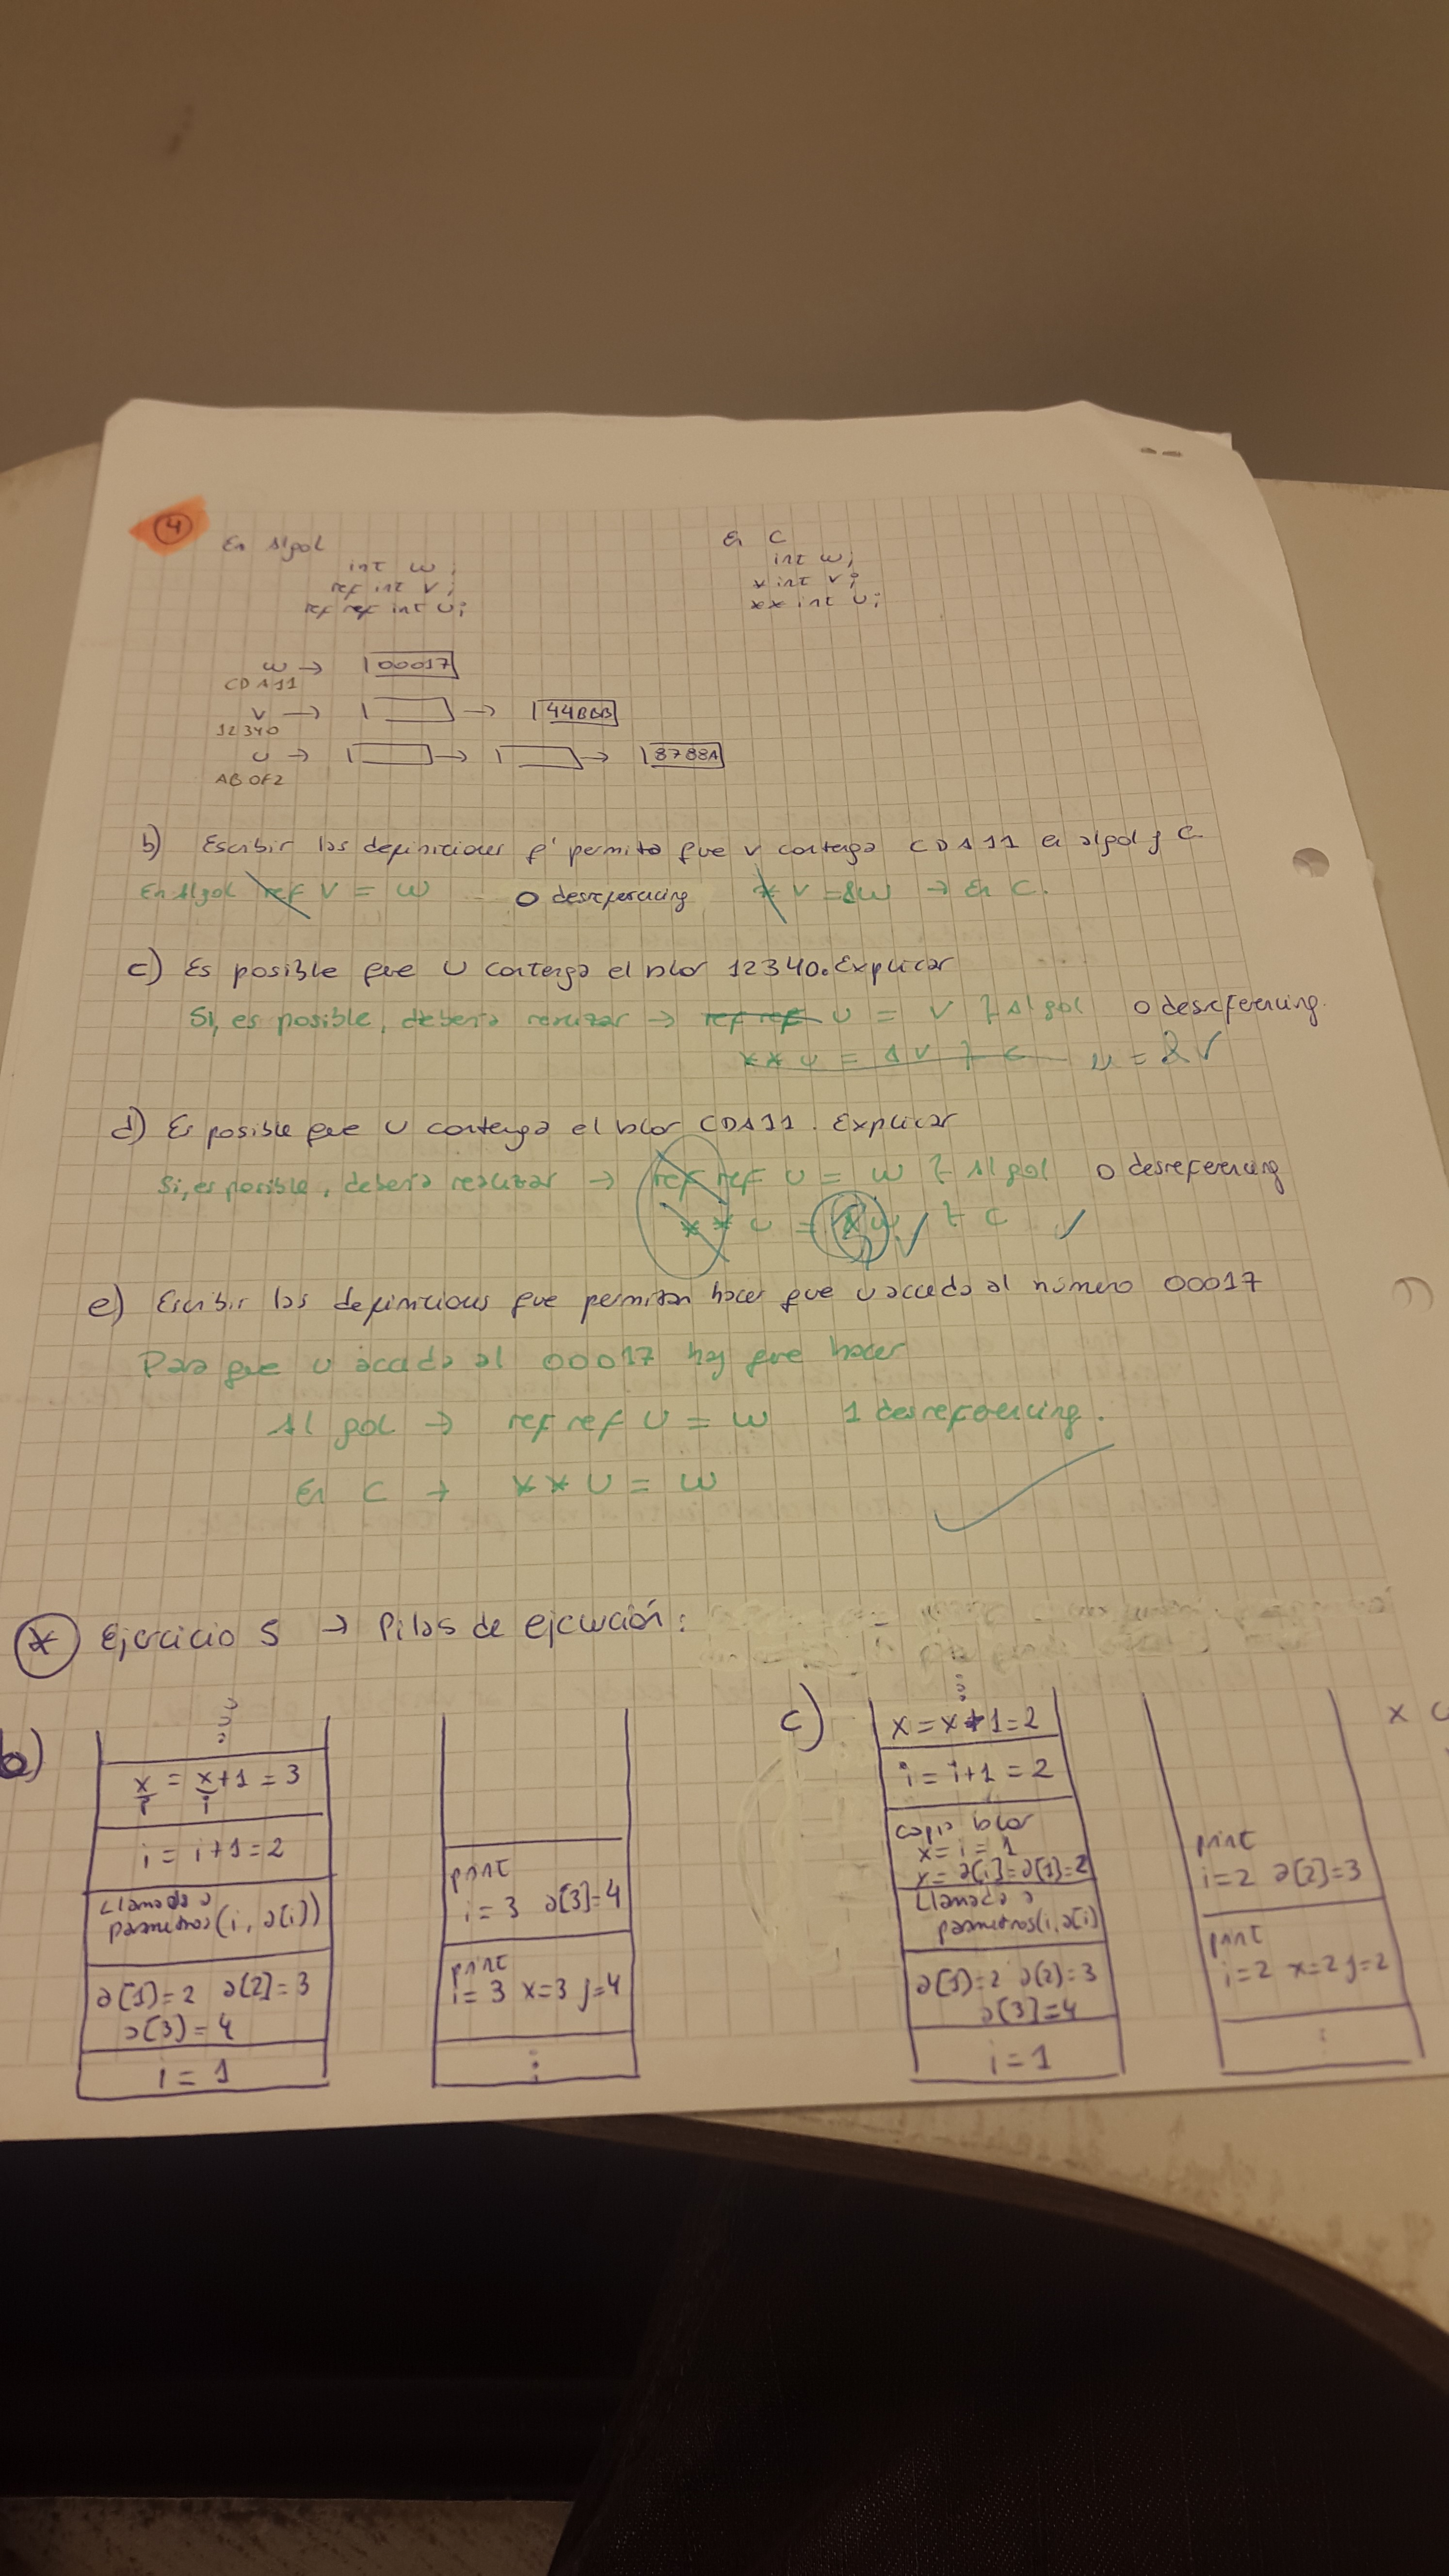 4
En Algol
int w;
ref int v;
ref ref int u;
En C
int w;
* int v;
** int u;
w → 00017
CDA11
v → → 44BBB
12340
u → → → 8788A
AB0F2
b) Escribir las definiciones q' permita que v contenga CDA11 en algol y C
En Algol ref v = w 0 desreferencing * v = &w → En C.
c) Es posible que u contenga el valor 12340. Explicar
Si, es posible, debería realizar → ref ref u = v } Algol 0 desreferencing.
** u = &v } C u = &v
d) Es posible que u contenga el valor CDA11. Explicar
Si, es posible, debería realizar → ref ref u = w } Algol 0 desreferencing
** u = &w } C
e) Escribir las definiciones que permitan hacer que u acceda al número 00017
Para que u acceda al 00017 hay que hacer
Algol → ref ref u = w 1 desreferencing.
En C → ** u = w
* Ejercicio 5 → Pilas de ejecución:
b)
x = x+1 = 3
i i
i = i+1 = 2
Llamada a
parametros(i, a[i])
a[1]=2 a[2]=3
a[3]=4
i = 1
print
i = 3 a[3]=4
print
i = 3 x=3 y=4
c)
x = x+1 = 2
i = i+1 = 2
copia valor
x = i = 1
y = a[i]=a[1]=2
Llamada a
parametros(i, a[i])
a[1]=2 a[2]=3
a[3]=4
i = 1
print
i=2 a[2]=3
print
i=2 x=2 y=2
x